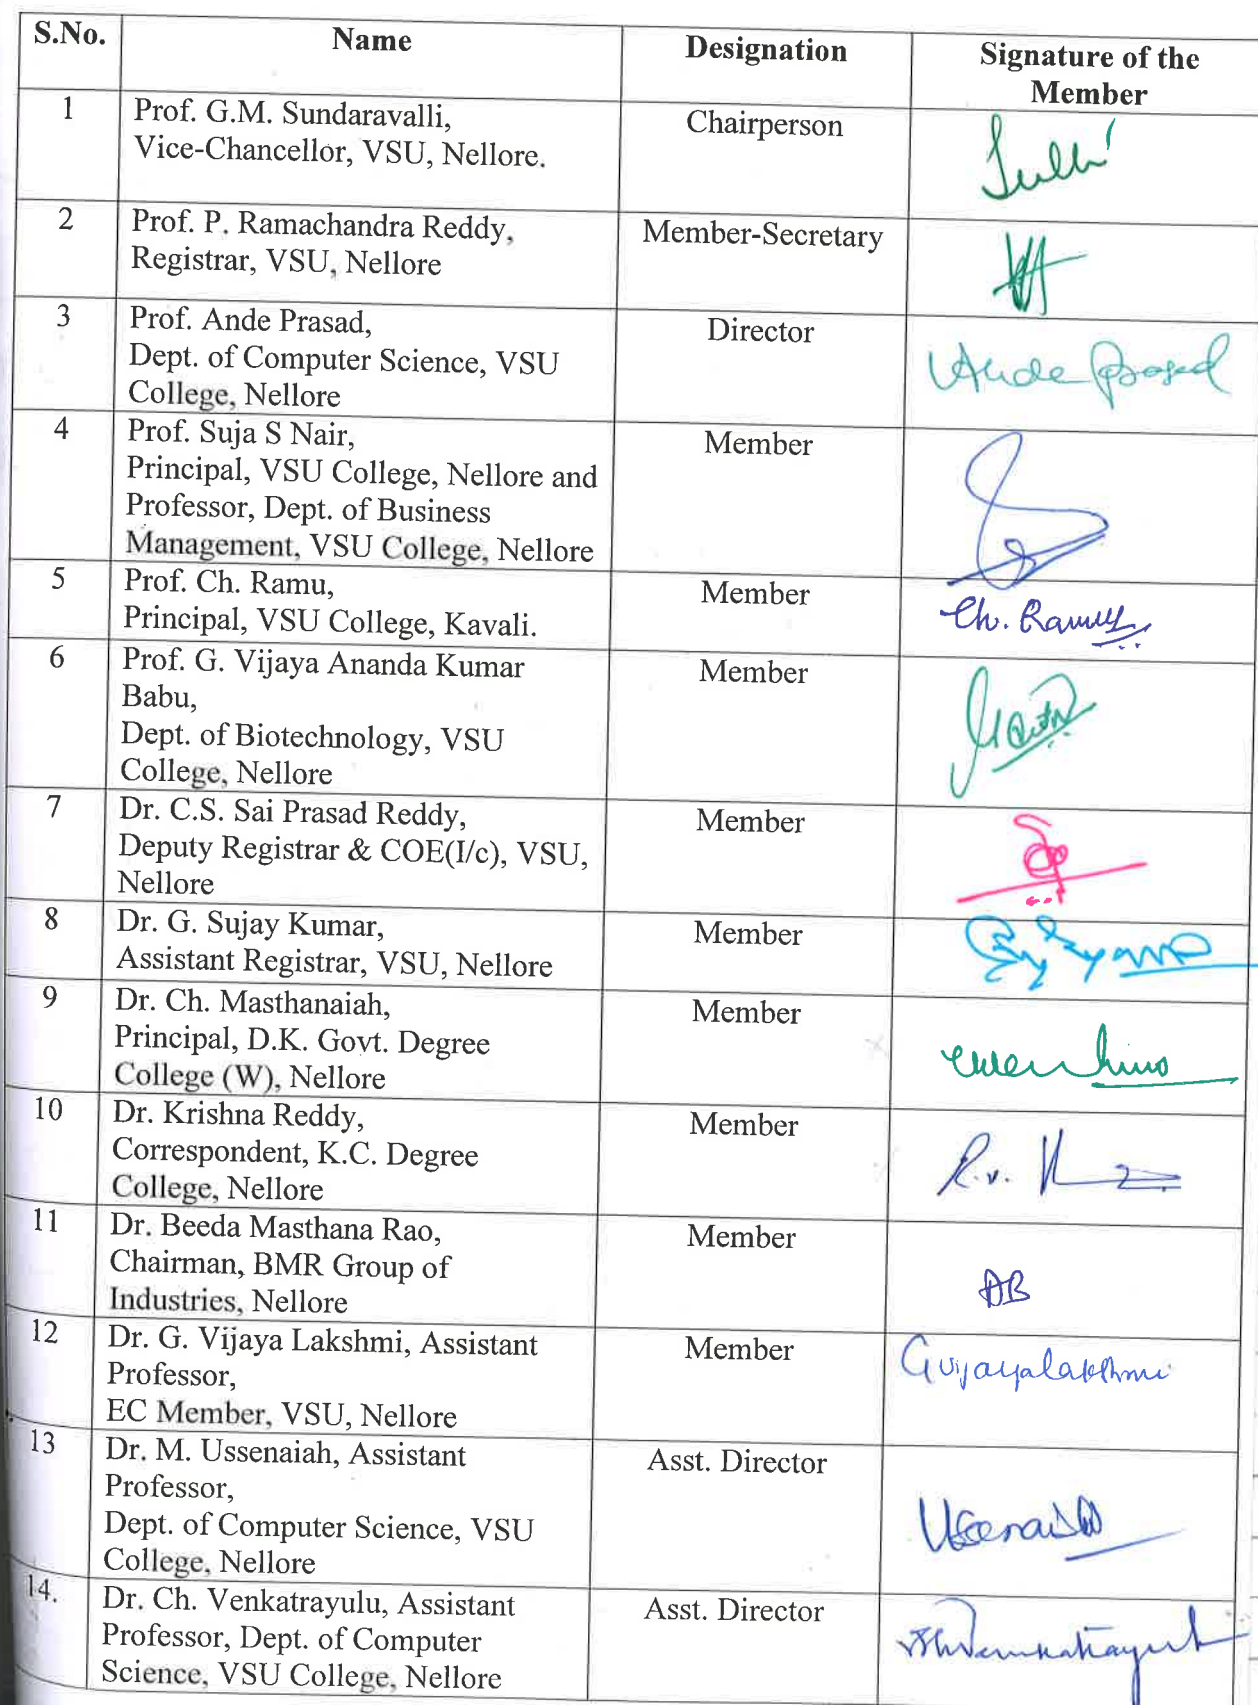 S.No.
Name
Designation
Signature of the
Member
1
Prof. G.M. Sundaravalli,
Vice-Chancellor, VSU, Nellore.
Chairperson
2
Prof. P. Ramachandra Reddy,
Registrar, VSU, Nellore
Member-Secretary
3
Prof. Ande Prasad,
Dept. of Computer Science, VSU
College, Nellore
Director
Ande Prasad
4
Prof. Suja S Nair,
Principal, VSU College, Nellore and
Professor, Dept. of Business
Management, VSU College, Nellore
Member
5
Prof. Ch. Ramu,
Principal, VSU College, Kavali.
Member
Ch. Ramu
6
Prof. G. Vijaya Ananda Kumar
Babu,
Dept. of Biotechnology, VSU
College, Nellore
Member
7
Dr. C.S. Sai Prasad Reddy,
Deputy Registrar & COE(I/c), VSU,
Nellore
Member
8
Dr. G. Sujay Kumar,
Assistant Registrar, VSU, Nellore
Member
9
Dr. Ch. Masthanaiah,
Principal, D.K. Govt. Degree
College (W), Nellore
Member
10
Dr. Krishna Reddy,
Correspondent, K.C. Degree
College, Nellore
Member
11
Dr. Beeda Masthana Rao,
Chairman, BMR Group of
Industries, Nellore
Member
12
Dr. G. Vijaya Lakshmi, Assistant
Professor,
EC Member, VSU, Nellore
Member
G Vijayalakshmi
13
Dr. M. Ussenaiah, Assistant
Professor,
Dept. of Computer Science, VSU
College, Nellore
Asst. Director
Ussenaiah
14.
Dr. Ch. Venkatrayulu, Assistant
Professor, Dept. of Computer
Science, VSU College, Nellore
Asst. Director